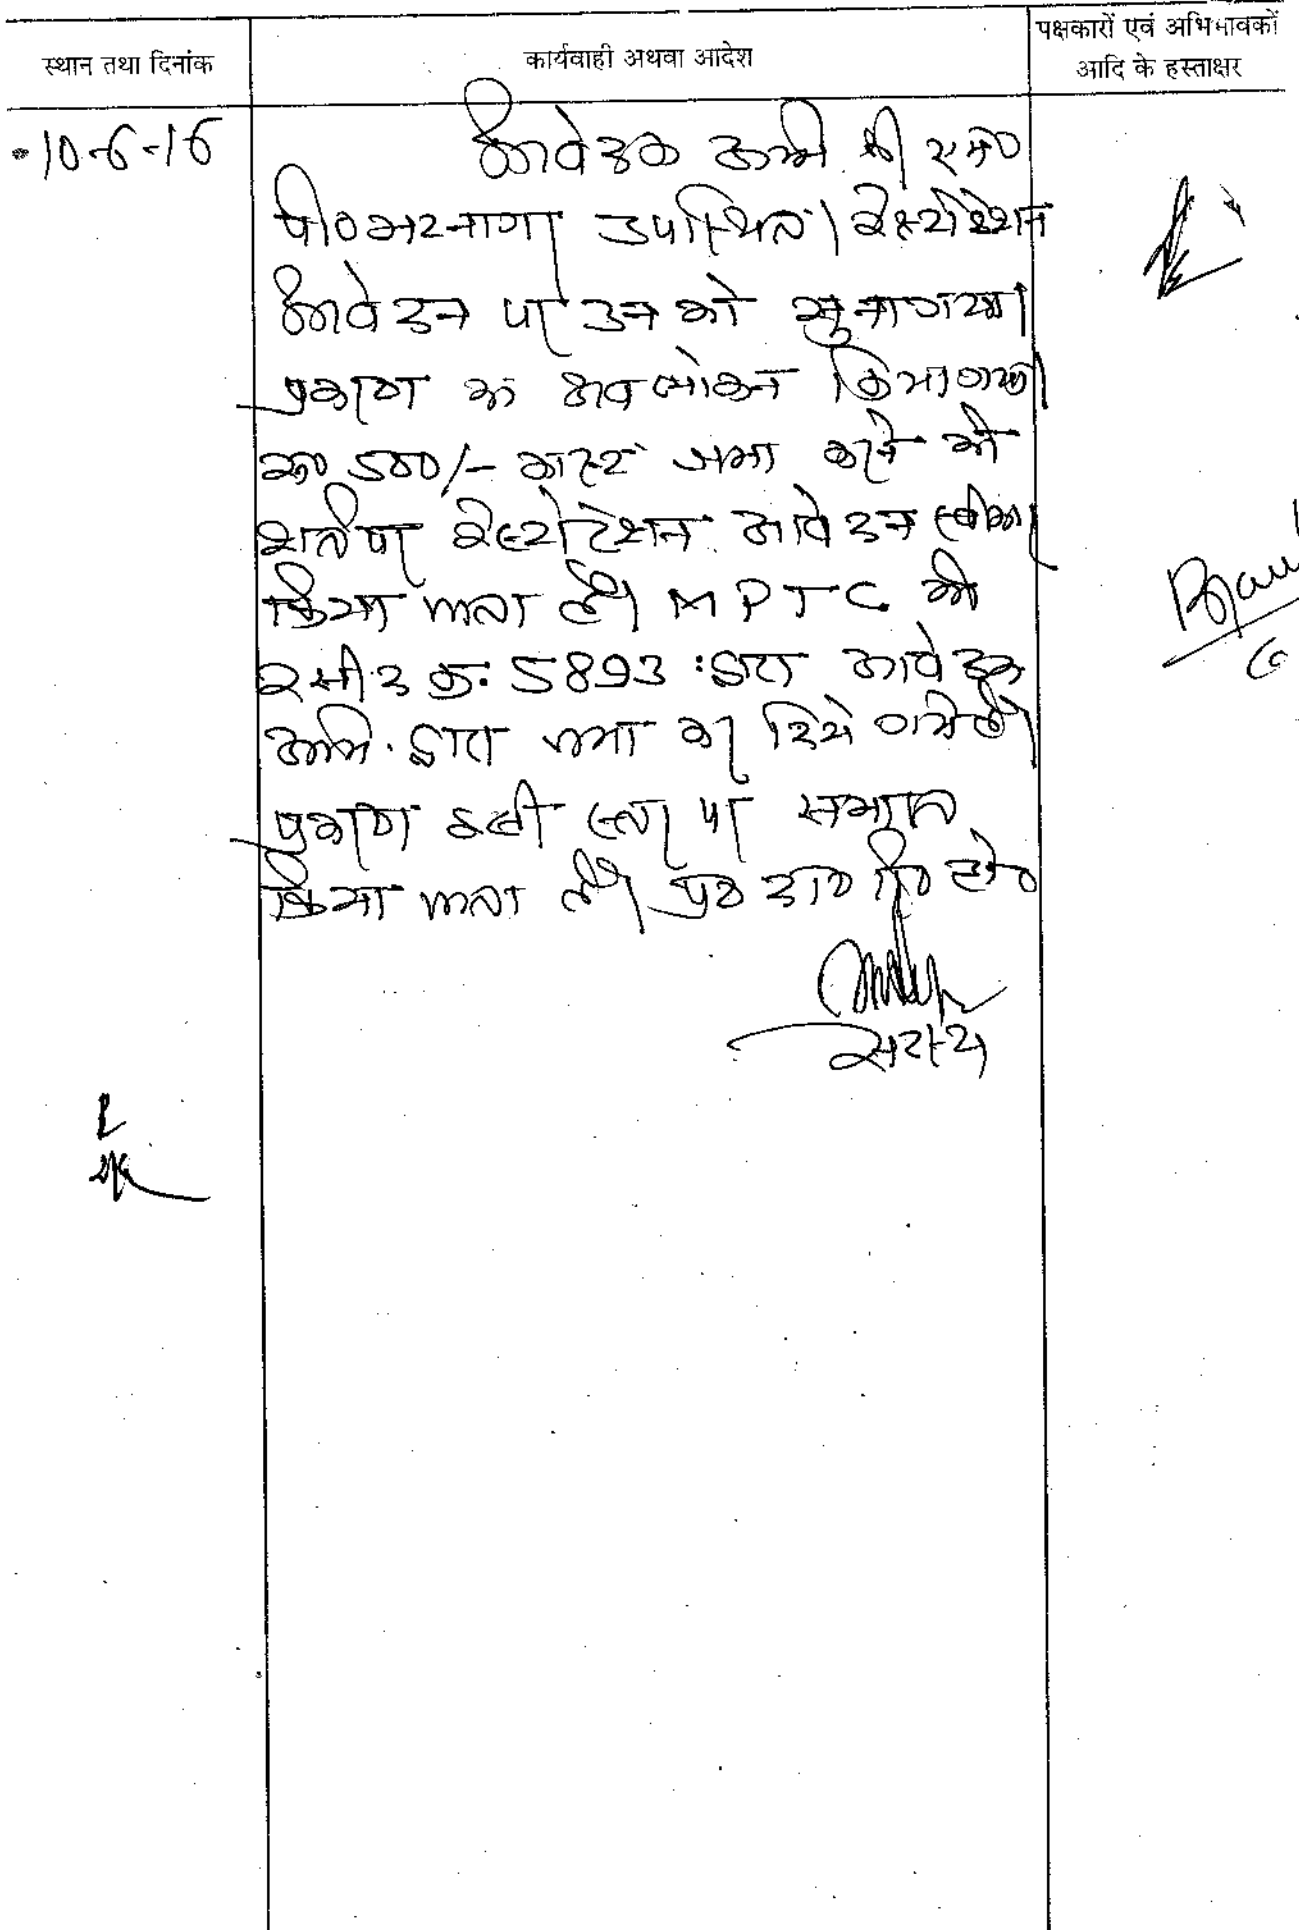 स्थान तथा दिनांक
कार्यवाही अथवा आदेश
पक्षकारों एवं अभिभावकों
आदि के हस्ताक्षर
10-6-16
आवेदक अभि. श्री एस०
पी० भटनागर उपस्थित। रेस्टोरेशन
आवेदन पर उन को सुना गया।
प्रकरण का अवलोकन किया गया।
रू० 500/- कास्ट जमा करने की
शर्त पर रेस्टोरेशन आवेदन स्वीकार
किया जाता है। MPTC की
रसीद क्र. 5893 द्वारा आवेदक
अभि. द्वारा जमा कर दिये गये है।
प्रकरण इसी स्तर पर समाप्त
किया जाता है। प्र० दा० रि० हो०
सदस्य